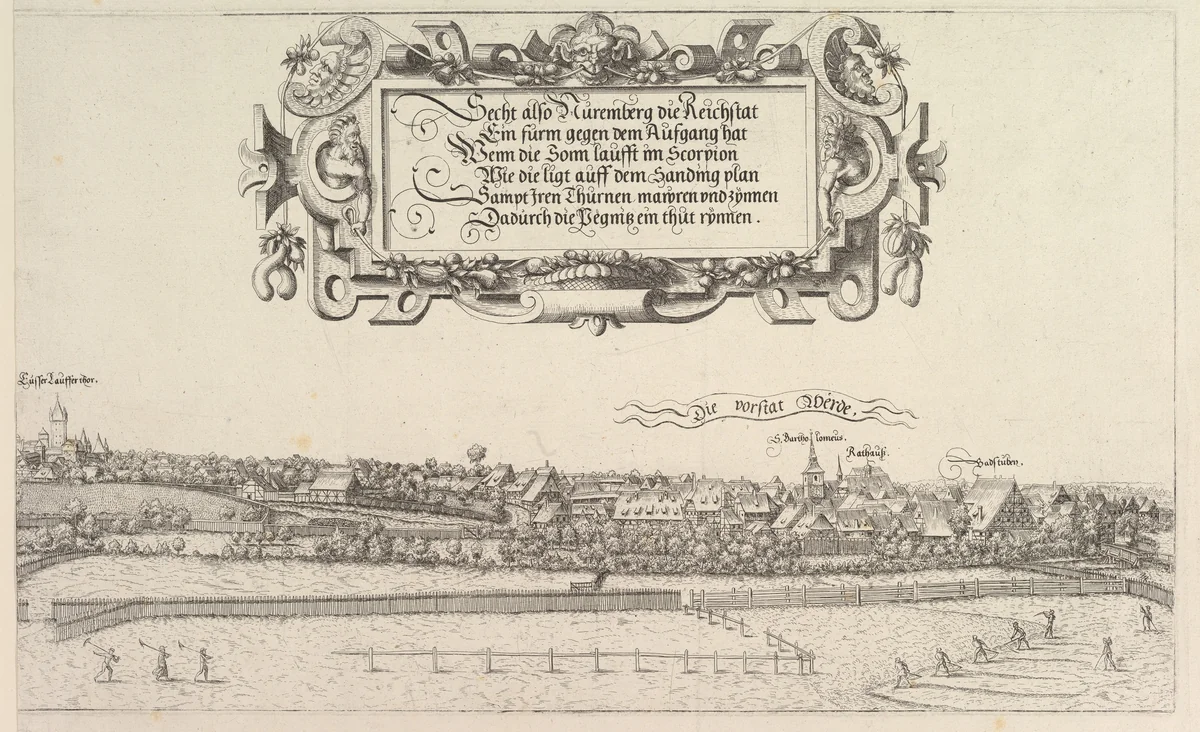 Secht also Nüremberg die Reichstat
Ein fürm gegen dem Aufgang hat
Wenn die Sonn laufft im Scorpion
Wie die ligt auff dem Sanding plan
Sampt Iren Thürnen mawren vnd zÿnnen
Dadürch die Pegnitz ein thüt rÿnnen.
Eüsser Laufferthor.
Die vorstat Wërde.
S. Bartholomeus.
Rathauß.
Badstuben.